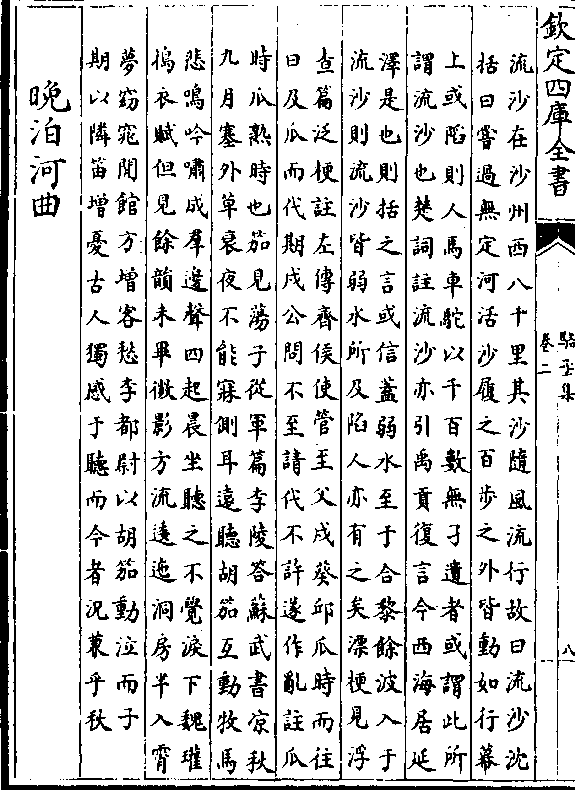 欽定四庫全書
駱丞集
卷二
八
流沙在沙州西八十里其沙隨風流行故曰流沙沈
括曰嘗過無定河活沙履之百步之外皆動如行幕
上或陷則人馬車駝以千百數無孑遺者或謂此所
謂流沙也楚詞註流沙亦引禹貢復言今西海居延
澤是也則括之言或信蓋弱水至于合黎餘波入于
流沙則流沙皆弱水所及陷人亦有之矣漂梗見浮
查篇泛梗註左傳齊侯使管至父戍葵邱瓜時而往
曰及瓜而代期戍公問不至請代不許遂作亂註瓜
時瓜熟時也笳見蕩子從軍篇李陵答蘇武書凉秋
九月塞外草衰夜不能寐側耳遠聽胡笳互動牧馬
悲鳴吟嘯成羣邊聲四起晨坐聽之不覺淚下魏璀
搗衣賦但見餘韻未畢微影方流逶迤洞房半入霄
夢窈窕閒館方增客愁李都尉以胡笳動泣而子
期以隣笛增憂古人獨感于聽而今者況兼乎秋
晚泊河曲